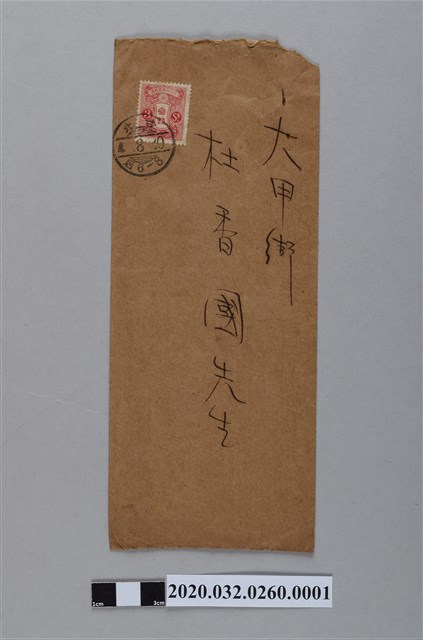 大甲街
杜香國先生
8
2020.032.0260.0001
1cm
3cm